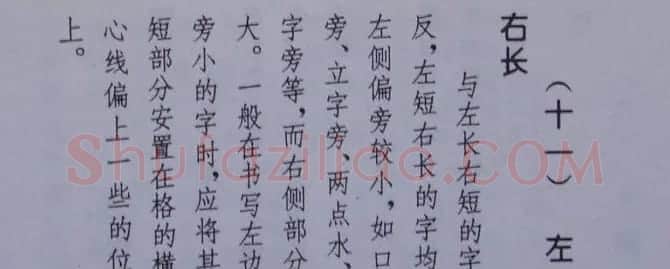 （十一）左
右长
与左长右短的字
反，左短右长的字均
左侧偏旁较小，如口
旁、立字旁、两点水、
字旁等，而右侧部分
大。一般在书写左边
旁小的字时，应将其
短部分安置在格的横
心线偏上一些的位
上。
Shufaziliao.COM